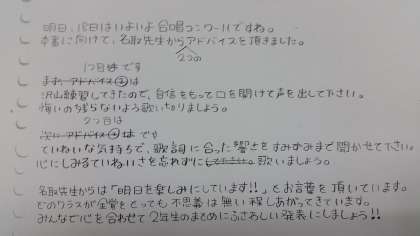 明日、18日はいよいよ合唱コンクールですね。
本番に向けて、名取先生からアドバイスを頂きました。
2つの
1つ目は です
まず、アドバイス①は
沢山練習してきたので、自信をもって口を開けて声を出して下さい。
悔いの残らないよう歌いきりましょう。
2つ目は
次にアドバイス②は です
ていねいな気持ちで、歌詞に合った響きをすみずみまで聞かせて下さい。
心にしみるていねいさを忘れずに 歌いましょう。
名取先生からは「明日を楽しみにしています!!」とお言葉を頂いています。
どのクラスが金賞をとっても不思議は無い程しあがってきています。
みんなで心を合わせて2年生のまとめにふさわしい発表にしましょう!!